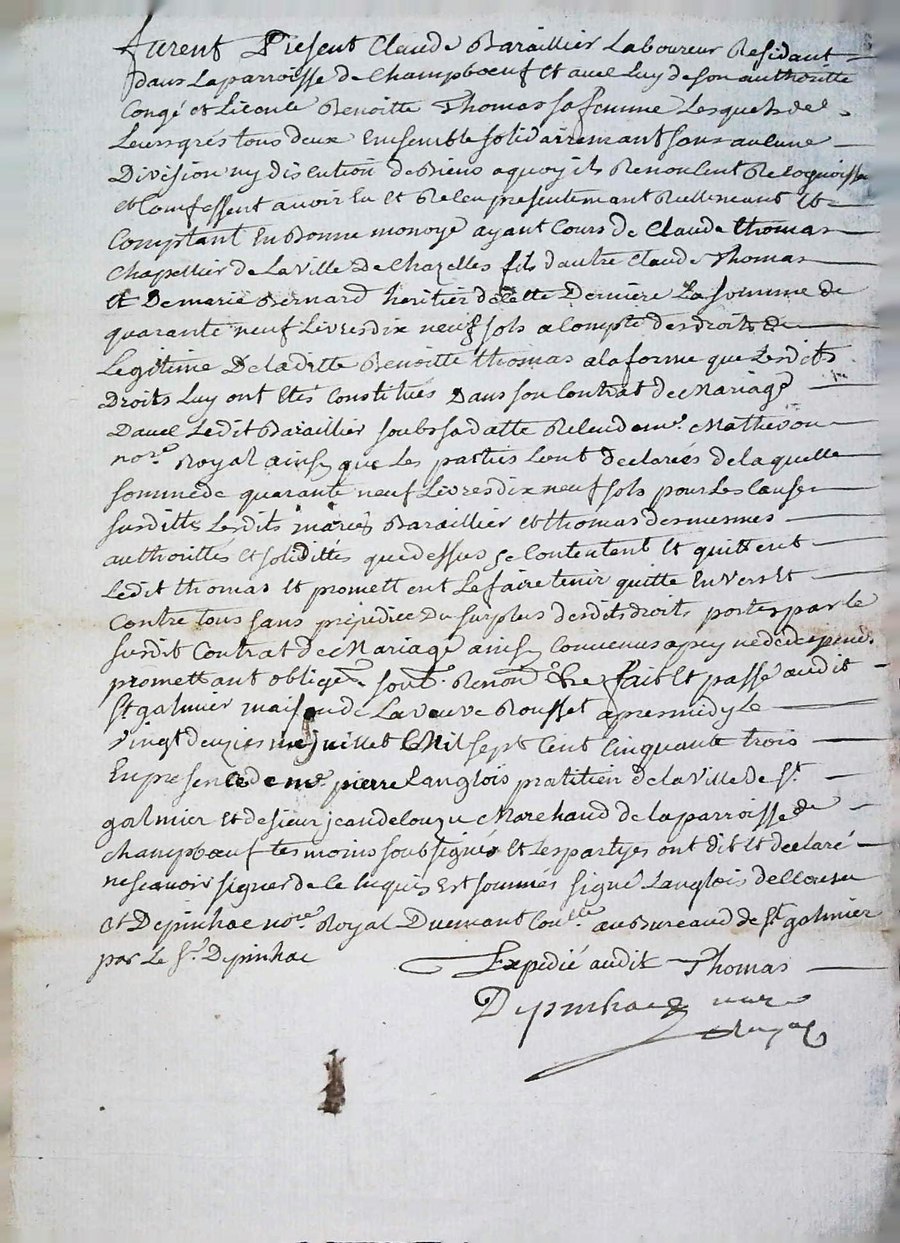 furent Present Claude Baraillier Laboureur Residant
dans Laparroisse de Champbœuf Et avec Luy de son authoritte
Congé et Licence Benoitte Thomas sa femme Lesquels de
Leurs grés tous deux Ensemble solidairemant sans aucune
Division ny discution de Biens a quoy ils Renoncent Recognoisse
et Confessent avoir Eu et Receu presentemant Reellemant Et
Comptant En Bonne monoye ayant Cours de Claude Thomas
Chapellier de La ville De Chazelles fils d'autre Claude Thomas
Et De marie Bernard heritier de Cette Derniere La somme de
quarante neuf Livres dix neuf sols a Compte des droits de
Legitime De laditte Benoitte Thomas a la forme que Lesdits
Droits Luy ont Etés Constitués Dans son Contrat de Mariage
Davec Ledit Baraillier soubs sa datte Receu de me. Mathevon
nore. Royal ainsy que Les parties L'ont declarées de laquelle
somme de quarante neuf Livres dix neuf sols pour Les Causes
susdittes Lesdits mariés Baraillier et Thomas des mesmes
authorittés Et solidittés que dessus se Contentent Et quittent
Ledit Thomas Et promettent Le faire tenir quitte Envers Et
Contre tous sans prejudice Du surplus desdits droits portes par le
susdit Contrat de Mariage ainsy Convenus a peyne de depens
promettant oblige. soum. Renon. &re fait Et passé audit
St galmier maison de La veuve Rousset apres midy Le
vingt deuziesme juillet Mil sept Cent Cinquante trois
En presence de me. pierre Langlois pratitien de la ville de St.
galmier Et de sieur jean delouzu Marchand de la parroisse de
champbœuf tesmoins soubsignés Et Les partyes ont dit Et declaré
ne scavoir signer de ce Enquis Et sommés signé Langlois delouzu
Et Depinhac nore. Royal Duemant Conlle. au Bureaud de St galmier
par Le Sr. Depinhac
Expedié audit Thomas
Depinhac nore
Royal